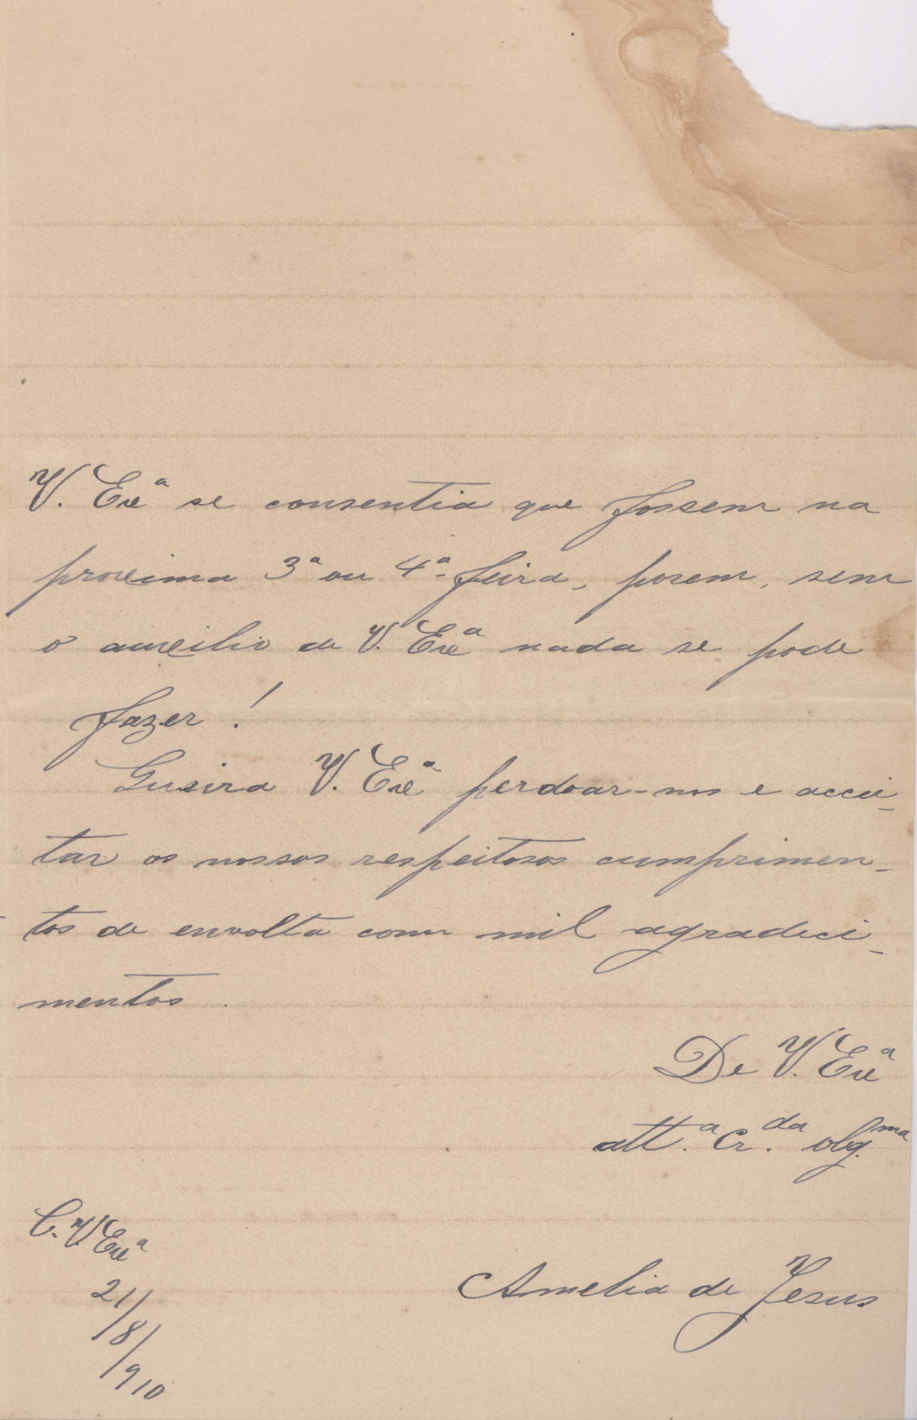 V. Exª se consentia que fossem na
proxima 3ª ou 4ª feira, porem, sem
o auxilio de V. Exª nada se pode
fazer!
Queira V. Exª perdoar-nos e accei-
tar os nossos respeitosos cumprimen-
tos de envolta com mil agradeci-
mentos.
De V. Exª
att.ª Cr.da obg.ma
Amelia de Jesus
C. V. Exª
21/8/910